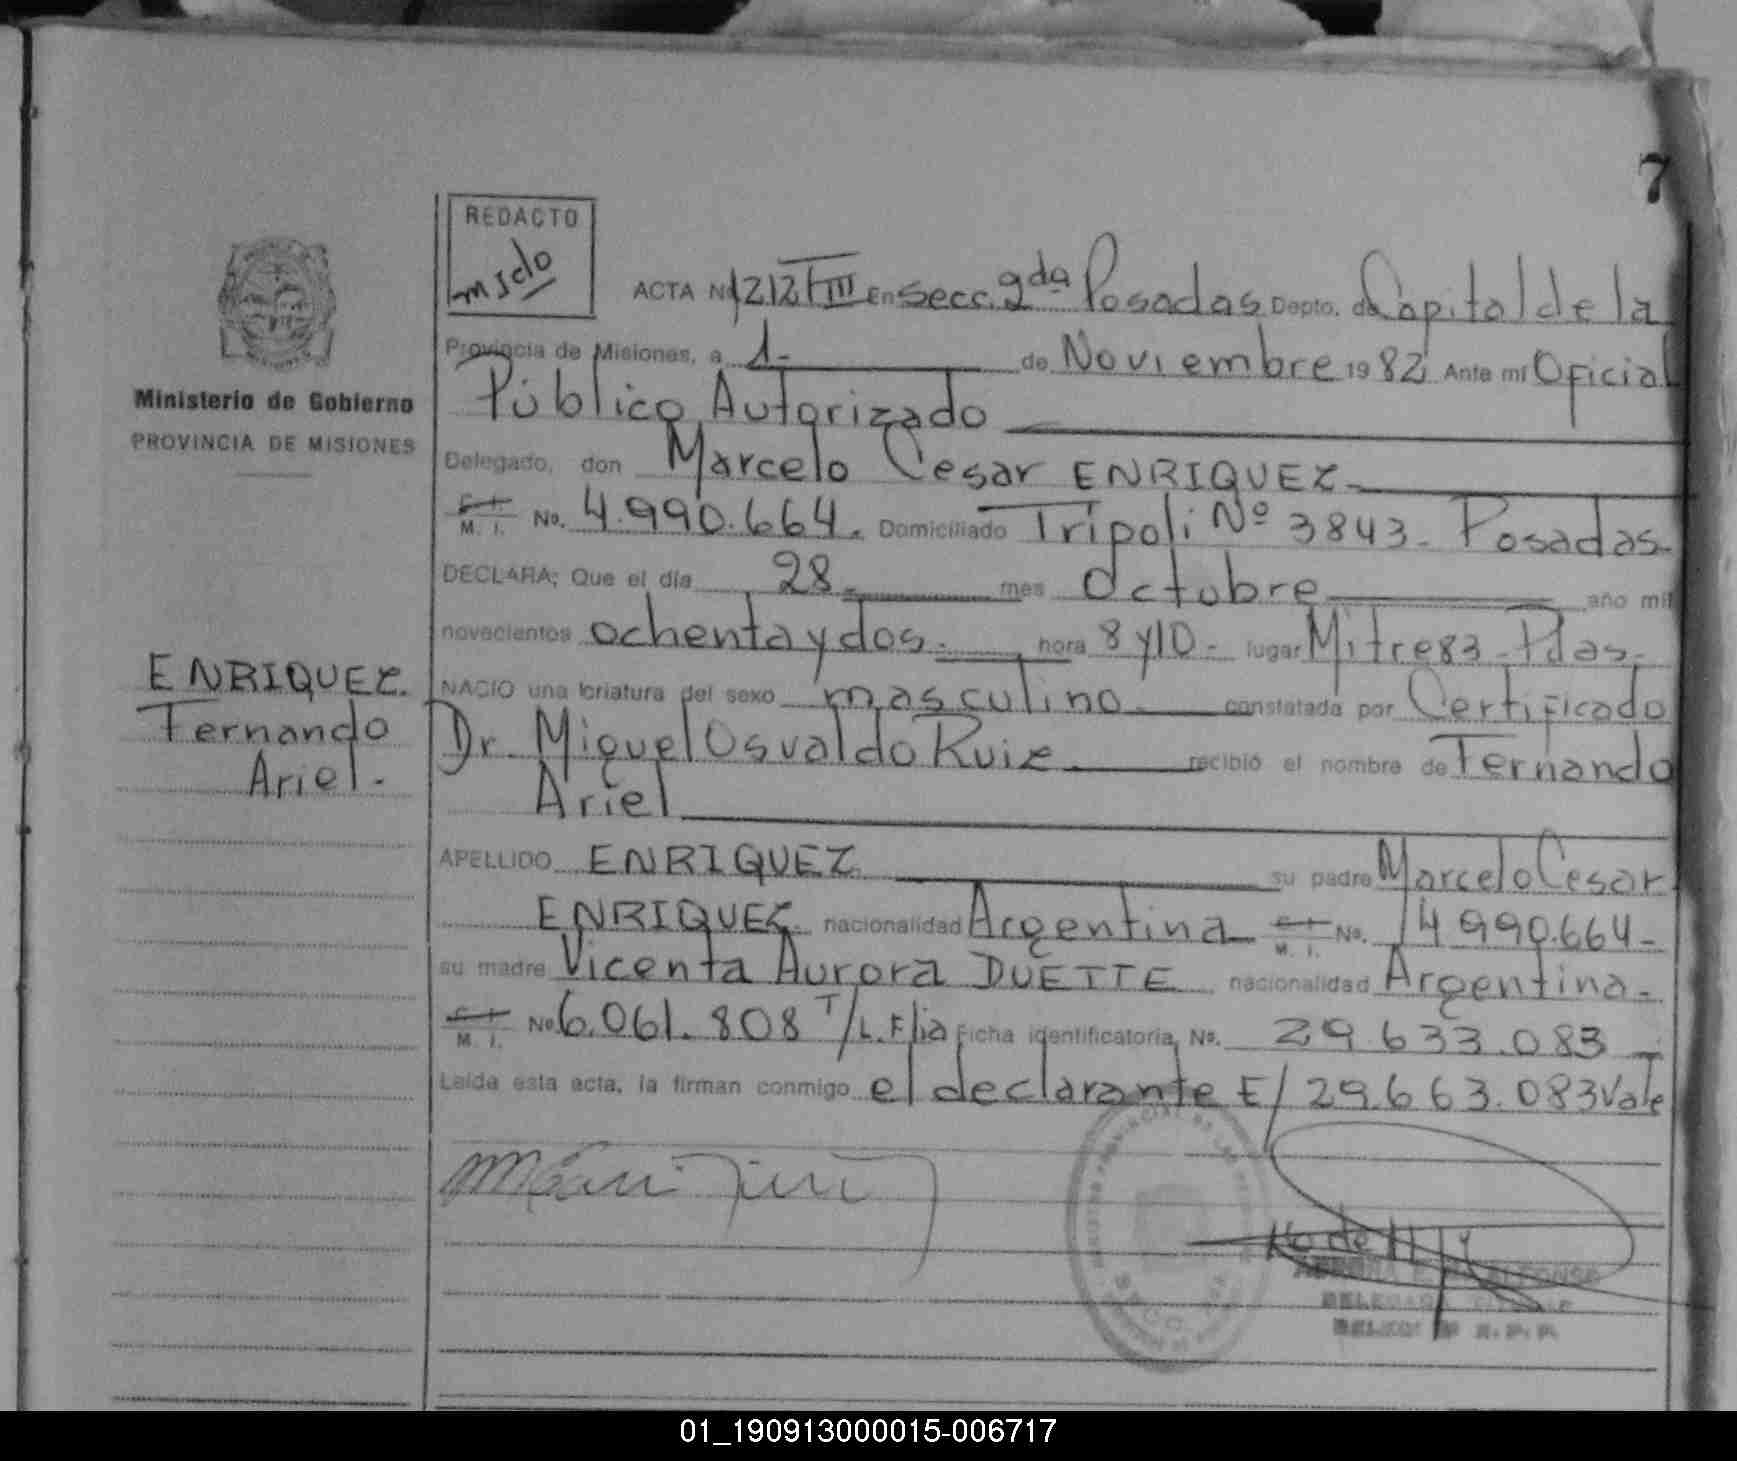 7
REDACTO
ACTA Nº 1212/III En Secc. 2da Posadas Depto. de Capital de la
Provincia de Misiones, a 1- de Noviembre 1982 Ante mi Oficial
Público Autorizado
Delegado, don Marcelo Cesar ENRIQUEZ
C.I. M. I. No. 4.990.664. Domiciliado Tripoli Nº 3843- Posadas-
DECLARA; Que el día 28 mes Octubre año mil
novecientos ochenta y dos. hora 8 y 10- lugar Mitre 83-Pdas-
NACIO una criatura del sexo masculino constatada por Certificado
Dr. Miguel Osvaldo Ruiz recibió el nombre de Fernando
Ariel
APELLIDO ENRIQUEZ su padre Marcelo Cesar
ENRIQUEZ nacionalidad Argentina C.I. M. I. No. 4.990.664-
su madre Vicenta Aurora DUETTE nacionalidad Argentina-
C.I. M. I. No 6.061.808 T/L.Flia Ficha identificatoria, No. 29.633.083
Leida esta acta, la firman conmigo el declarante E/ 29.663.083 Vale
Ministerio de Gobierno
PROVINCIA DE MISIONES
ENRIQUEZ.
Fernando
Ariel.
01_190913000015-006717